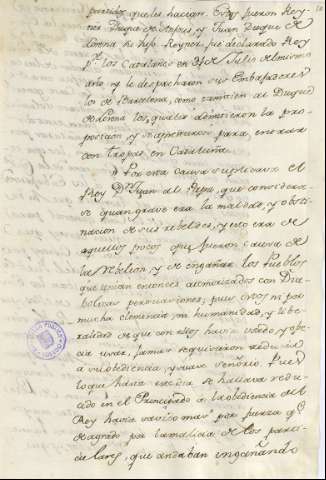 partidos, aquellos hacian. Estos fueron Rey-
ner Duque de Anjou, y Juan Duque de
Lorena su hijo. Reyner, fue declarado Rey
por los Catalanes en 31 de Julio del mismo
año y le despacharon sus Embaxadores
los de Barcelona, como tambien al Duque
de Lorena los quales admitieron la pro-
posicion, y se aprestaron para, entrar
con tropas en Cataluña.
Por esta causa suplicava el
Rey Dn. Juan al Papa, que consideras-
se quan grave era la maldad, y obsti-
nacion de sus rebeldes, y esto era de
aquellos pocos que fueron causa de
la Rebelion y de engañar los Pueblos
que tenian entonces atemorizados con Dia-
bolicas persuaciones; pues estos ni por
mucha clemencia ni humanidad, y libe-
ralidad de que con ellos havia usado y ofre-
cia usar, jamas se quisieron reducir
a su obediencia, y suave señorio. Pues
lo que hasta ese dia se hallava redu-
cido en el Principado a la obediencia del
Rey havia sido mas por fuerza que
de agrado por la malicia de los parti-
culares, que andaban engañando